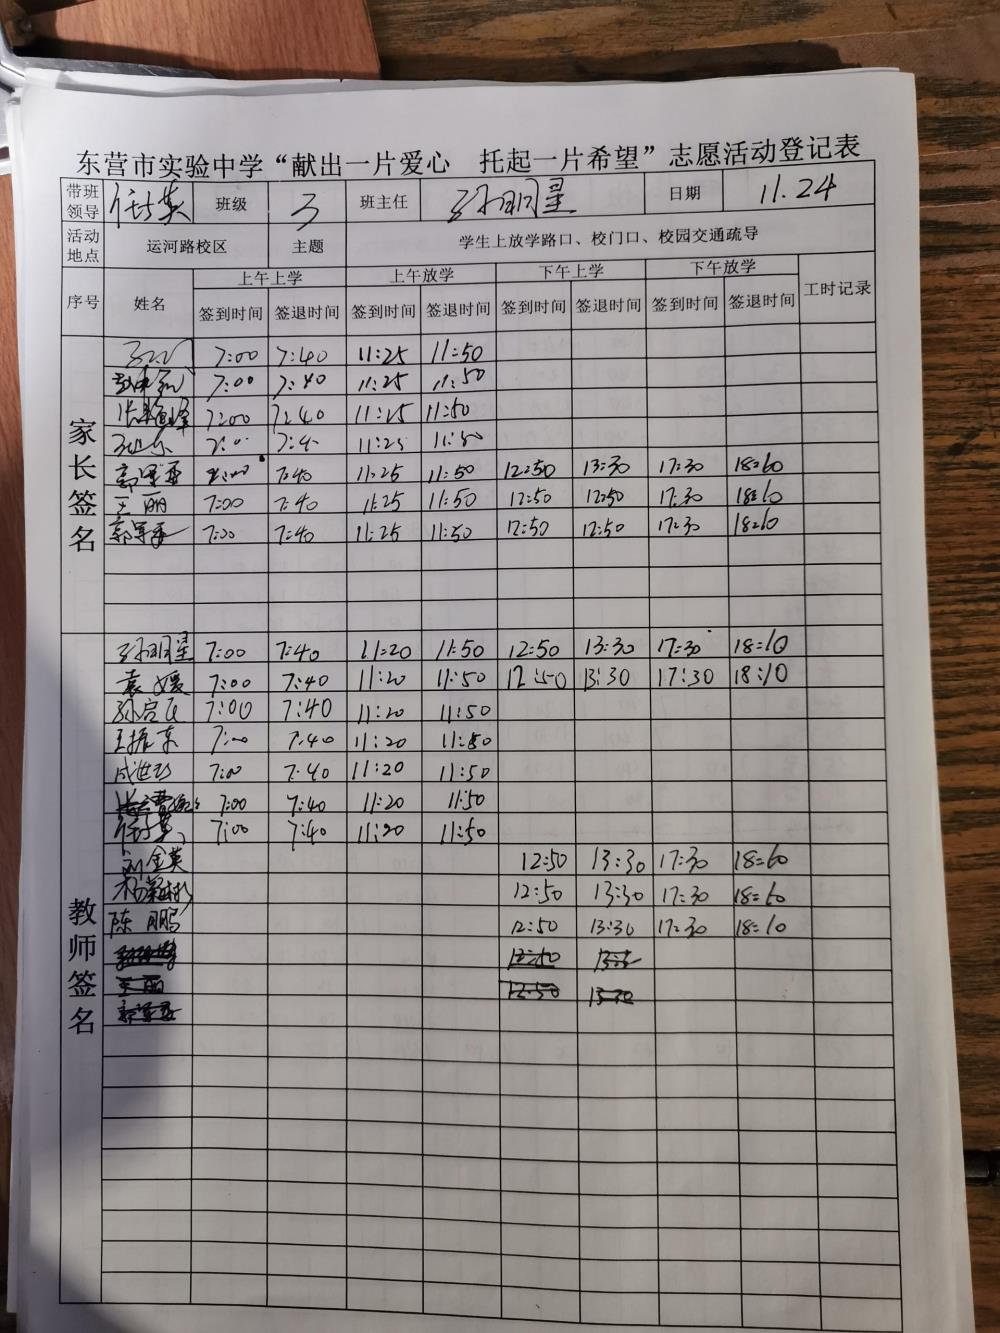 东营市实验中学“献出一片爱心 托起一片希望”志愿活动登记表
带班领导 班级 3 班主任 孙明星 日期 11.24
活动地点 运河路校区 主题 学生上放学路口、校门口、校园交通疏导
序号 姓名 上午上学 上午放学 下午上学 下午放学 工时记录
签到时间 签退时间 签到时间 签退时间 签到时间 签退时间 签到时间 签退时间
家长签名
7:00 7:40 11:25 11:50
7:00 7:40 11:25 11:50
7:00 7:40 11:25 11:50
11:25 11:50
7:40 11:25 11:50 12:50 13:30 17:30 18:10
王丽 7:00 7:40 11:25 11:50 12:50 12:50 17:30 18:10
郭军委 7:00 7:40 11:25 11:50 12:50 12:50 17:30 18:10
教师签名
孙明星 7:00 7:40 11:20 11:50 12:50 13:30 17:30 18:10
袁媛 7:00 7:40 11:20 11:50 12:50 13:30 17:30 18:10
7:00 7:40 11:20 11:50
王振东 7:00 7:40 11:20 11:50
7:00 7:40 11:20 11:50
7:00 7:40 11:20 11:50
7:00 7:40 11:20 11:50
刘金英 12:50 13:30 17:30 18:10
12:50 13:30 17:30 18:10
陈鹏 12:50 13:30 17:30 18:10
12:50
王丽 12:50 13:30